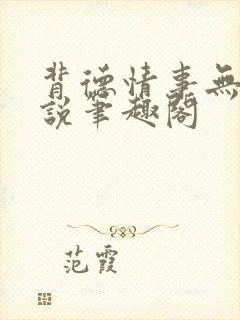 背德情事無
說筆趣閣
范霞